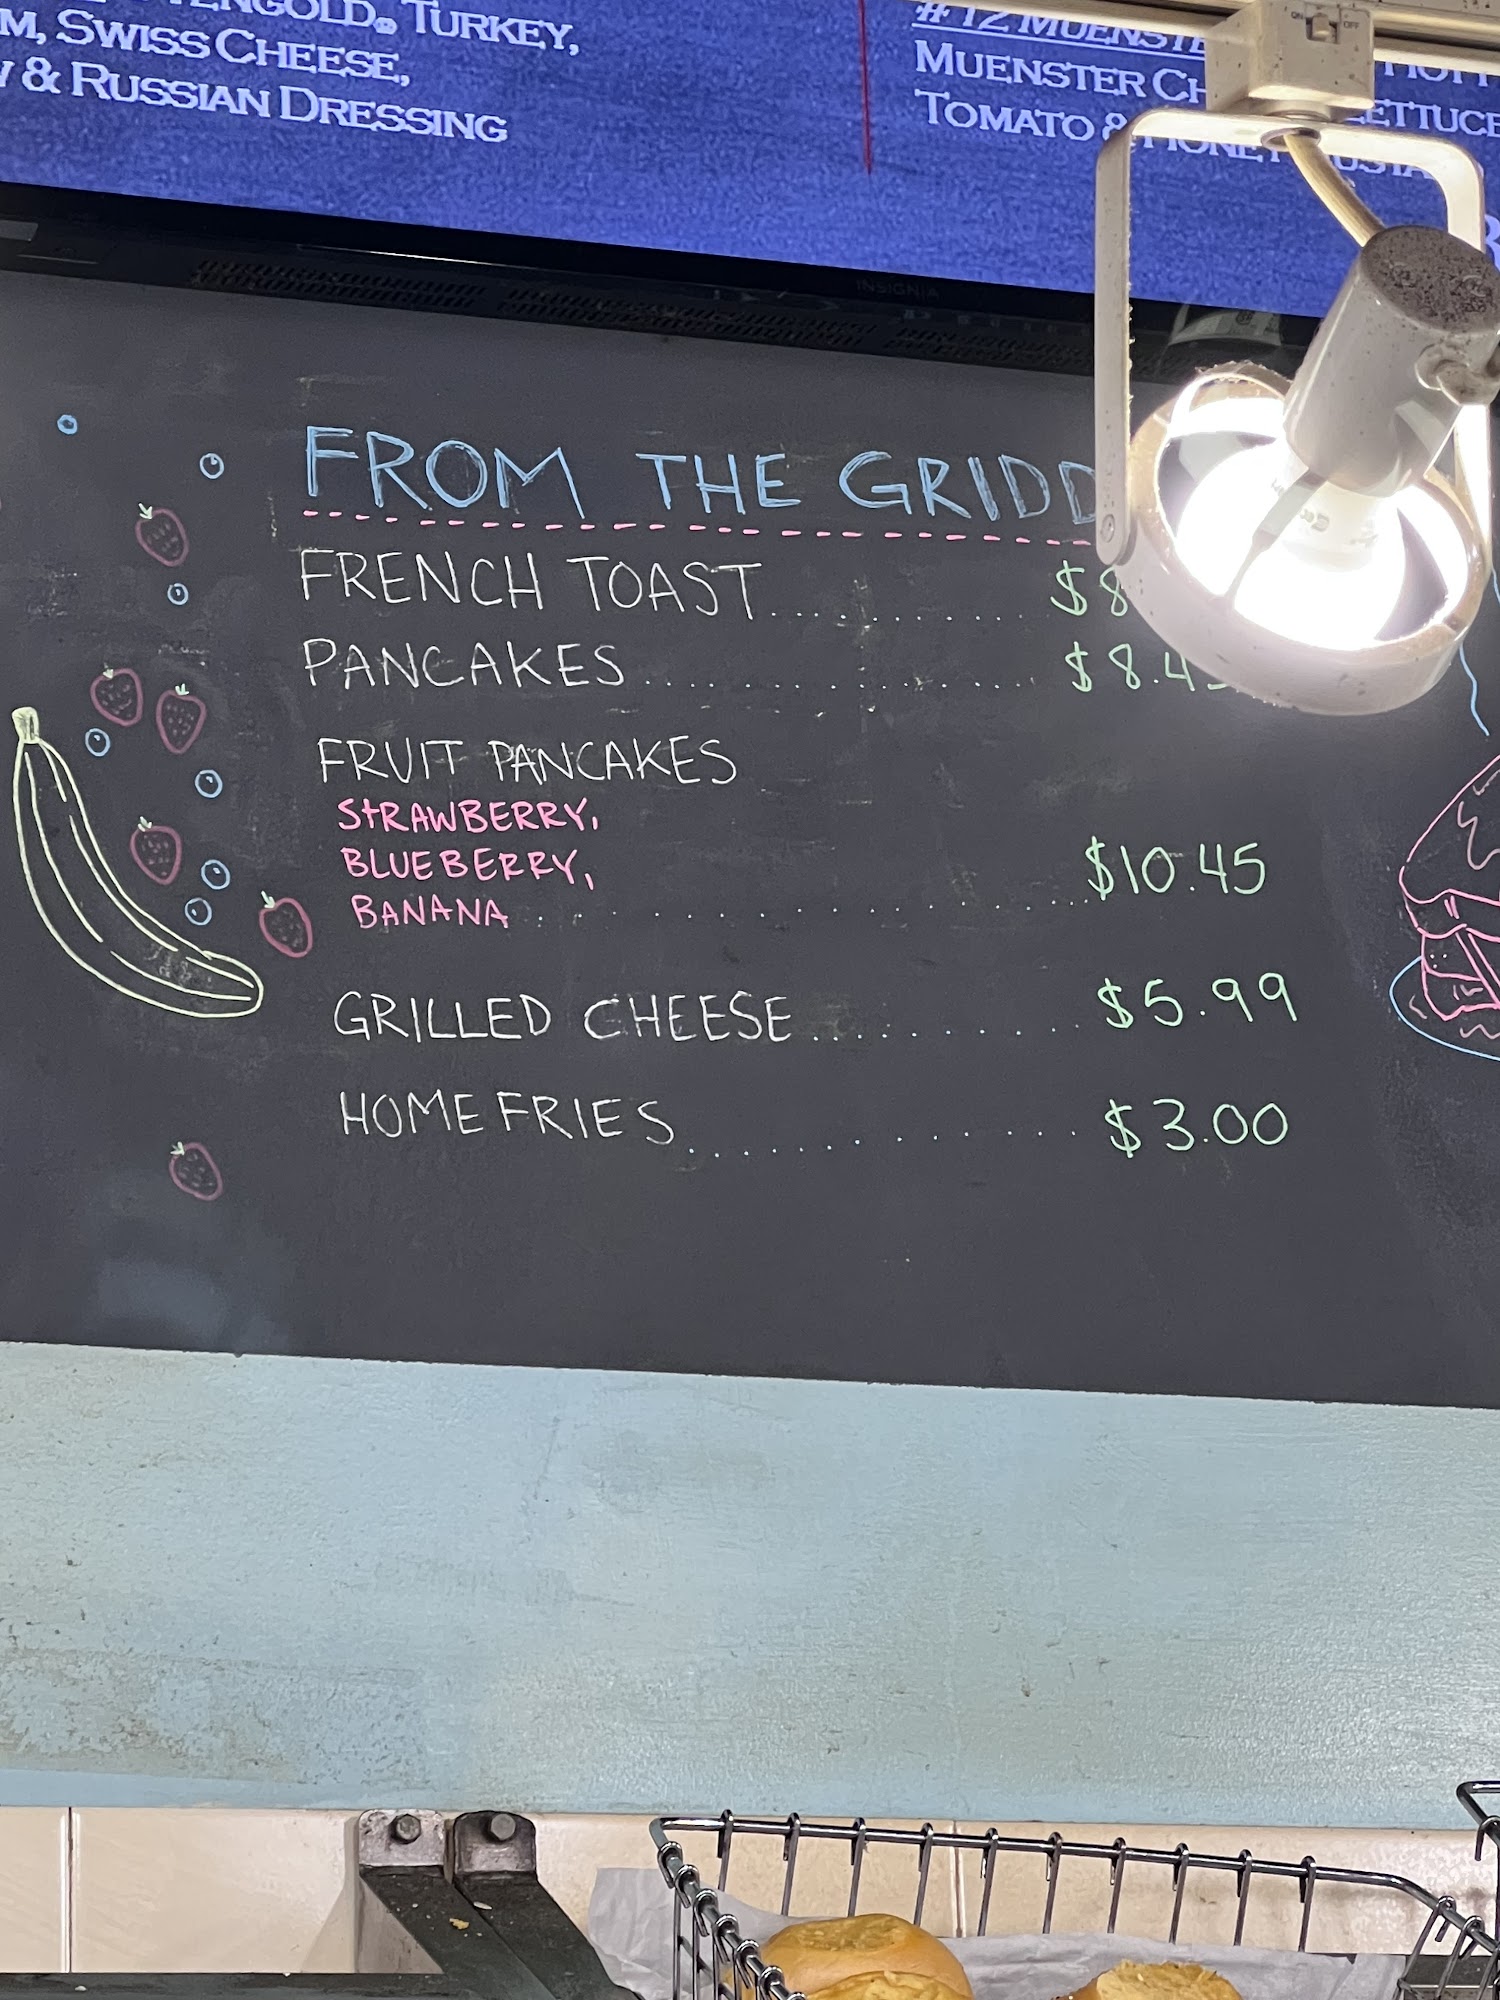 TURKEY,
SWISS CHEESE,
& RUSSIAN DRESSING
#12
MUENSTER
TOMATO &
INSIGNIA
ON OFF
FROM THE
FRENCH TOAST
PANCAKES
FRUIT PANCAKES
STRAWBERRY,
BLUEBERRY,
BANANA.................... $10.45
GRILLED CHEESE.......... $5.99
HOME FRIES.............. $3.00